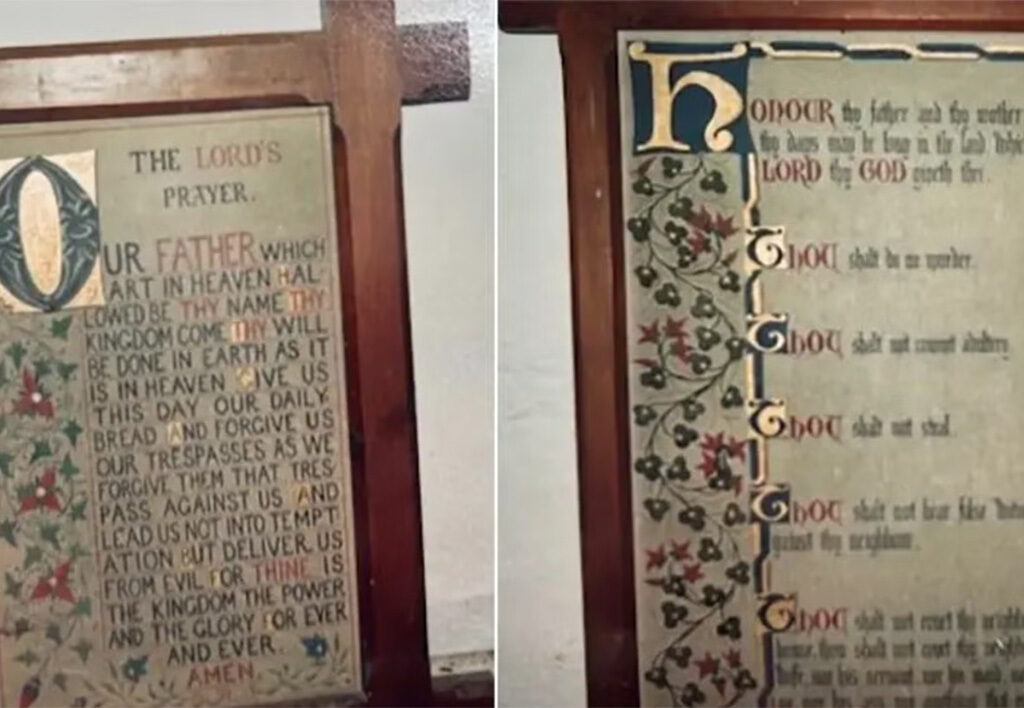 THE LORD'S
PRAYER.
OUR FATHER WHICH
ART IN HEAVEN HAL
LOWED BE THY NAME THY
KINGDOM COME THY WILL
BE DONE IN EARTH AS IT
IS IN HEAVEN GIVE US
THIS DAY OUR DAILY
BREAD AND FORGIVE US
OUR TRESPASSES AS WE
FORGIVE THEM THAT TRES
PASS AGAINST US AND
LEAD US NOT INTO TEMPT
ATION BUT DELIVER US
FROM EVIL FOR THINE IS
THE KINGDOM THE POWER
AND THE GLORY FOR EVER
AND EVER.
AMEN.
HONOUR thy father and thy mother
thy days may be long in the land
LORD thy GOD giveth thee.
THOU shalt do no murder.
THOU shalt not commit adultery.
THOU shalt not steal.
THOU shalt not bear false
against thy neighbour.
THOU shalt not covet thy
house, thou shalt not covet thy
wife, nor his servant, nor his maid, nor